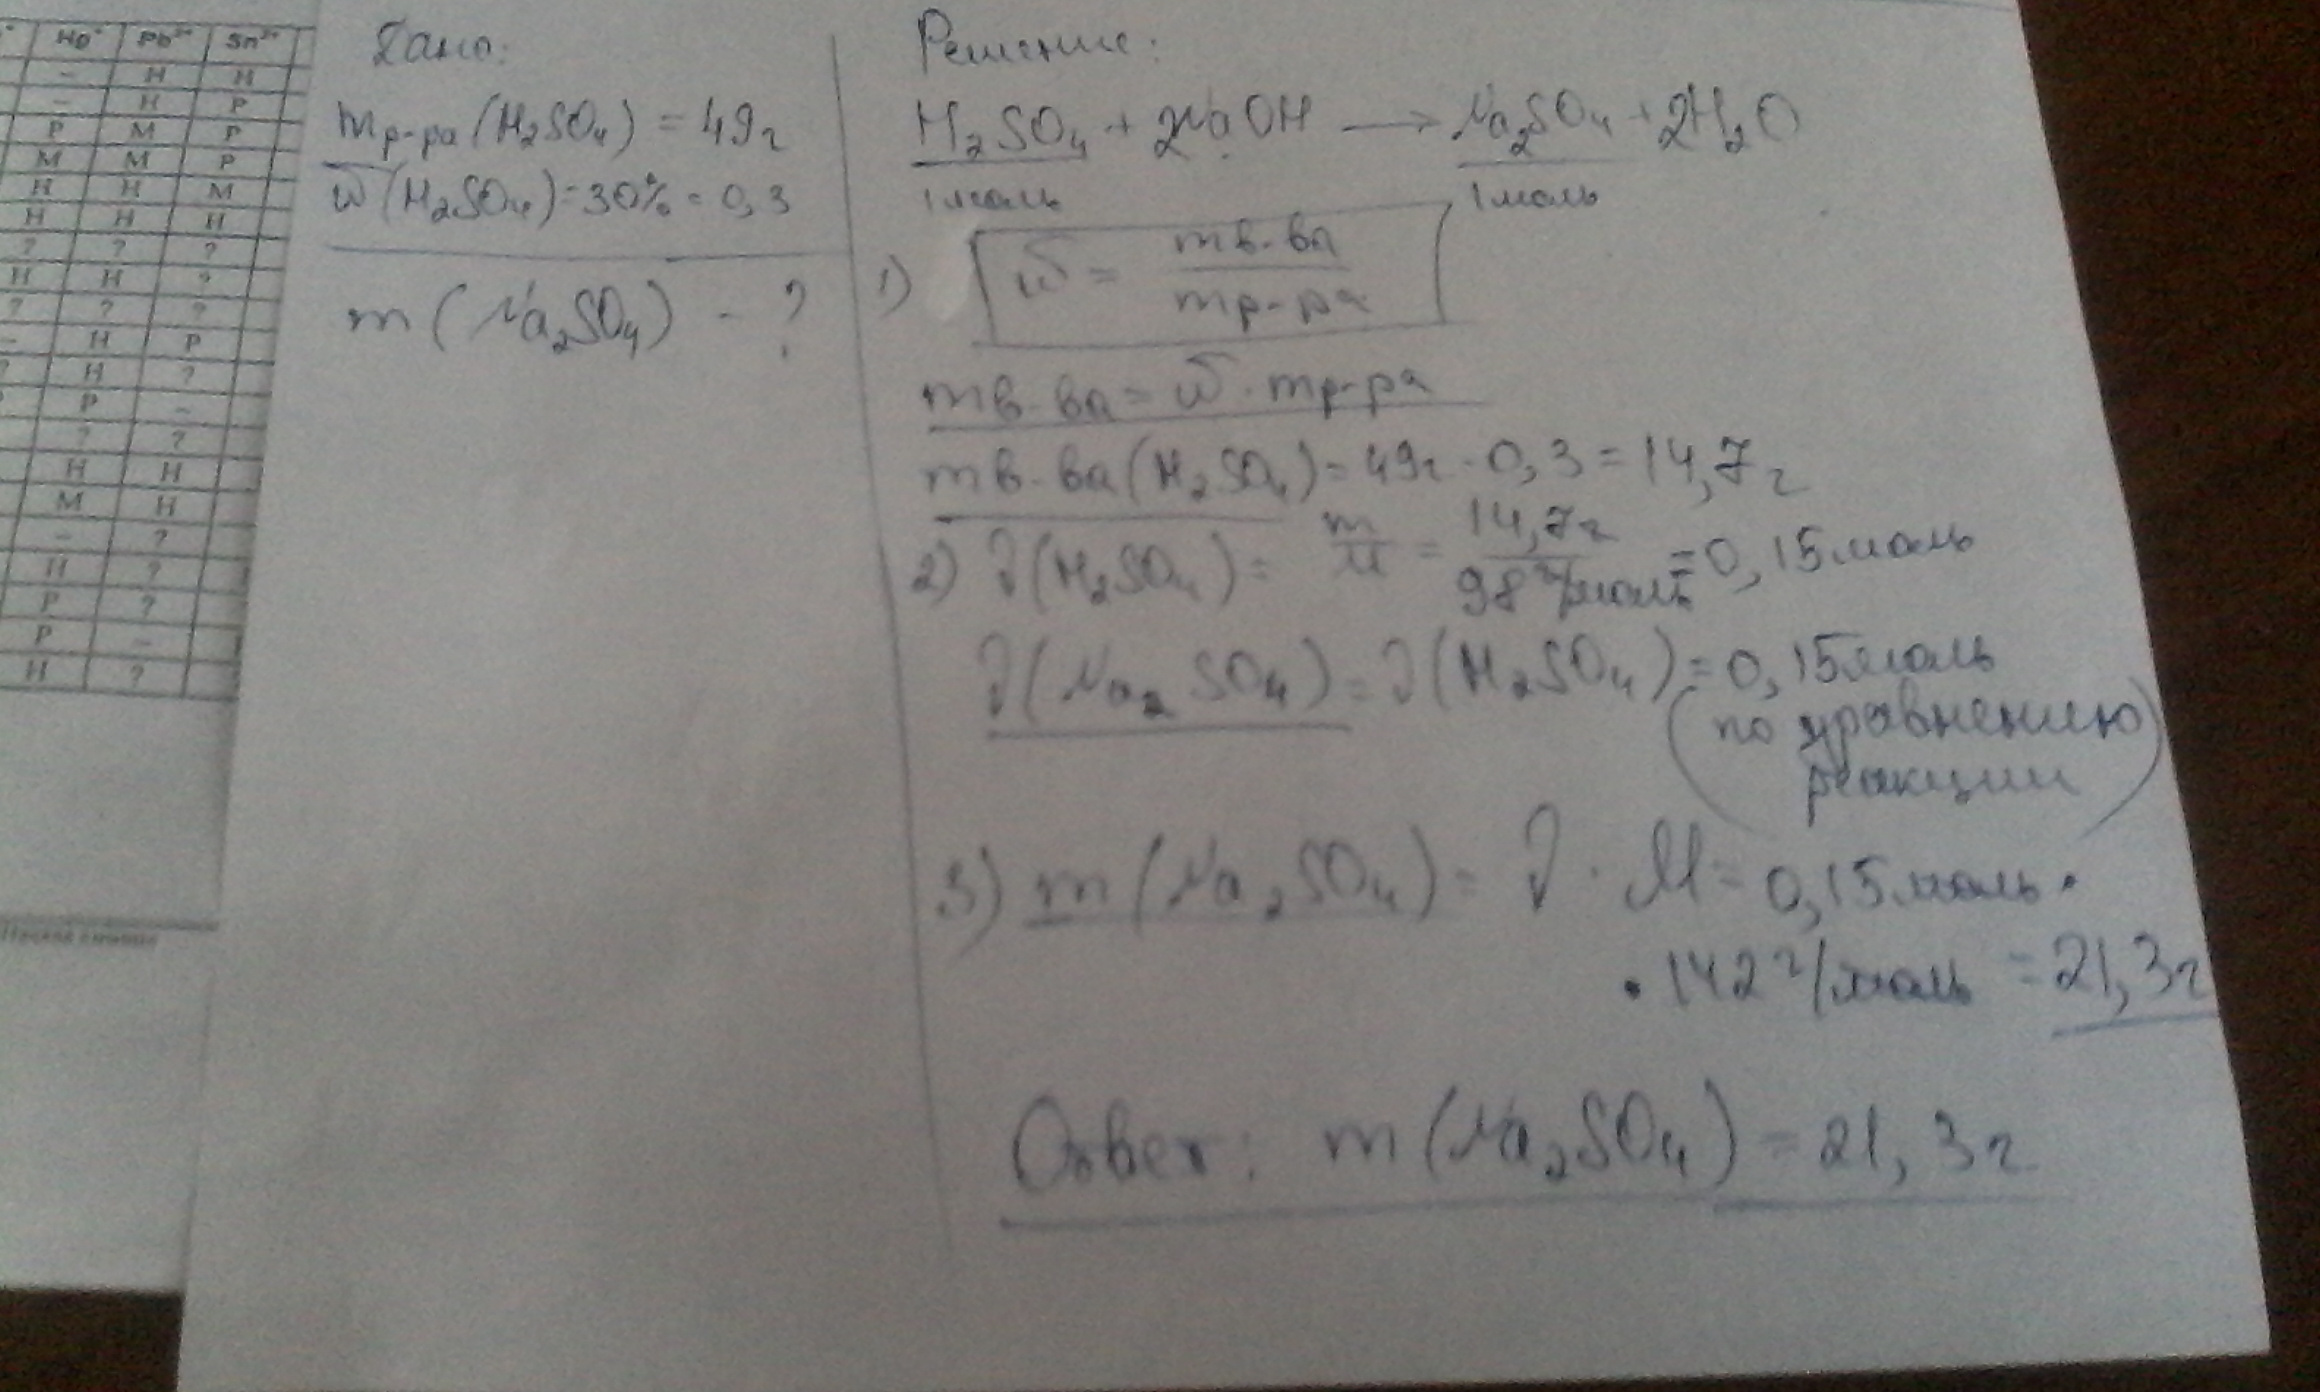 Hg⁺ Pb²⁺ Sn²⁺
– Н Н
– Н Р
Р М Р
М М Р
Н Н М
Н Н Н
? ? ?
Н Н ?
? ? ?
– Н Р
? Н ?
Р –
? ?
Н Н
М Н
– ?
Н ?
Р ?
Р –
Н ?
Дано:
mр-ра(H₂SO₄) = 49г
ω(H₂SO₄) = 30% = 0,3
m(Na₂SO₄) - ?
Решение:
H₂SO₄ + 2NaOH → Na₂SO₄ + 2H₂O
1моль 1моль
1) ω = mв-ва / mр-ра
mв-ва = ω · mр-ра
mв-ва(H₂SO₄) = 49г · 0,3 = 14,7г
2) ν(H₂SO₄) = m/M = 14,7г / 98г/моль = 0,15моль
ν(Na₂SO₄) = ν(H₂SO₄) = 0,15моль
(по уравнению
реакции)
3) m(Na₂SO₄) = ν · M = 0,15моль ·
· 142г/моль = 21,3г
Ответ: m(Na₂SO₄) = 21,3г